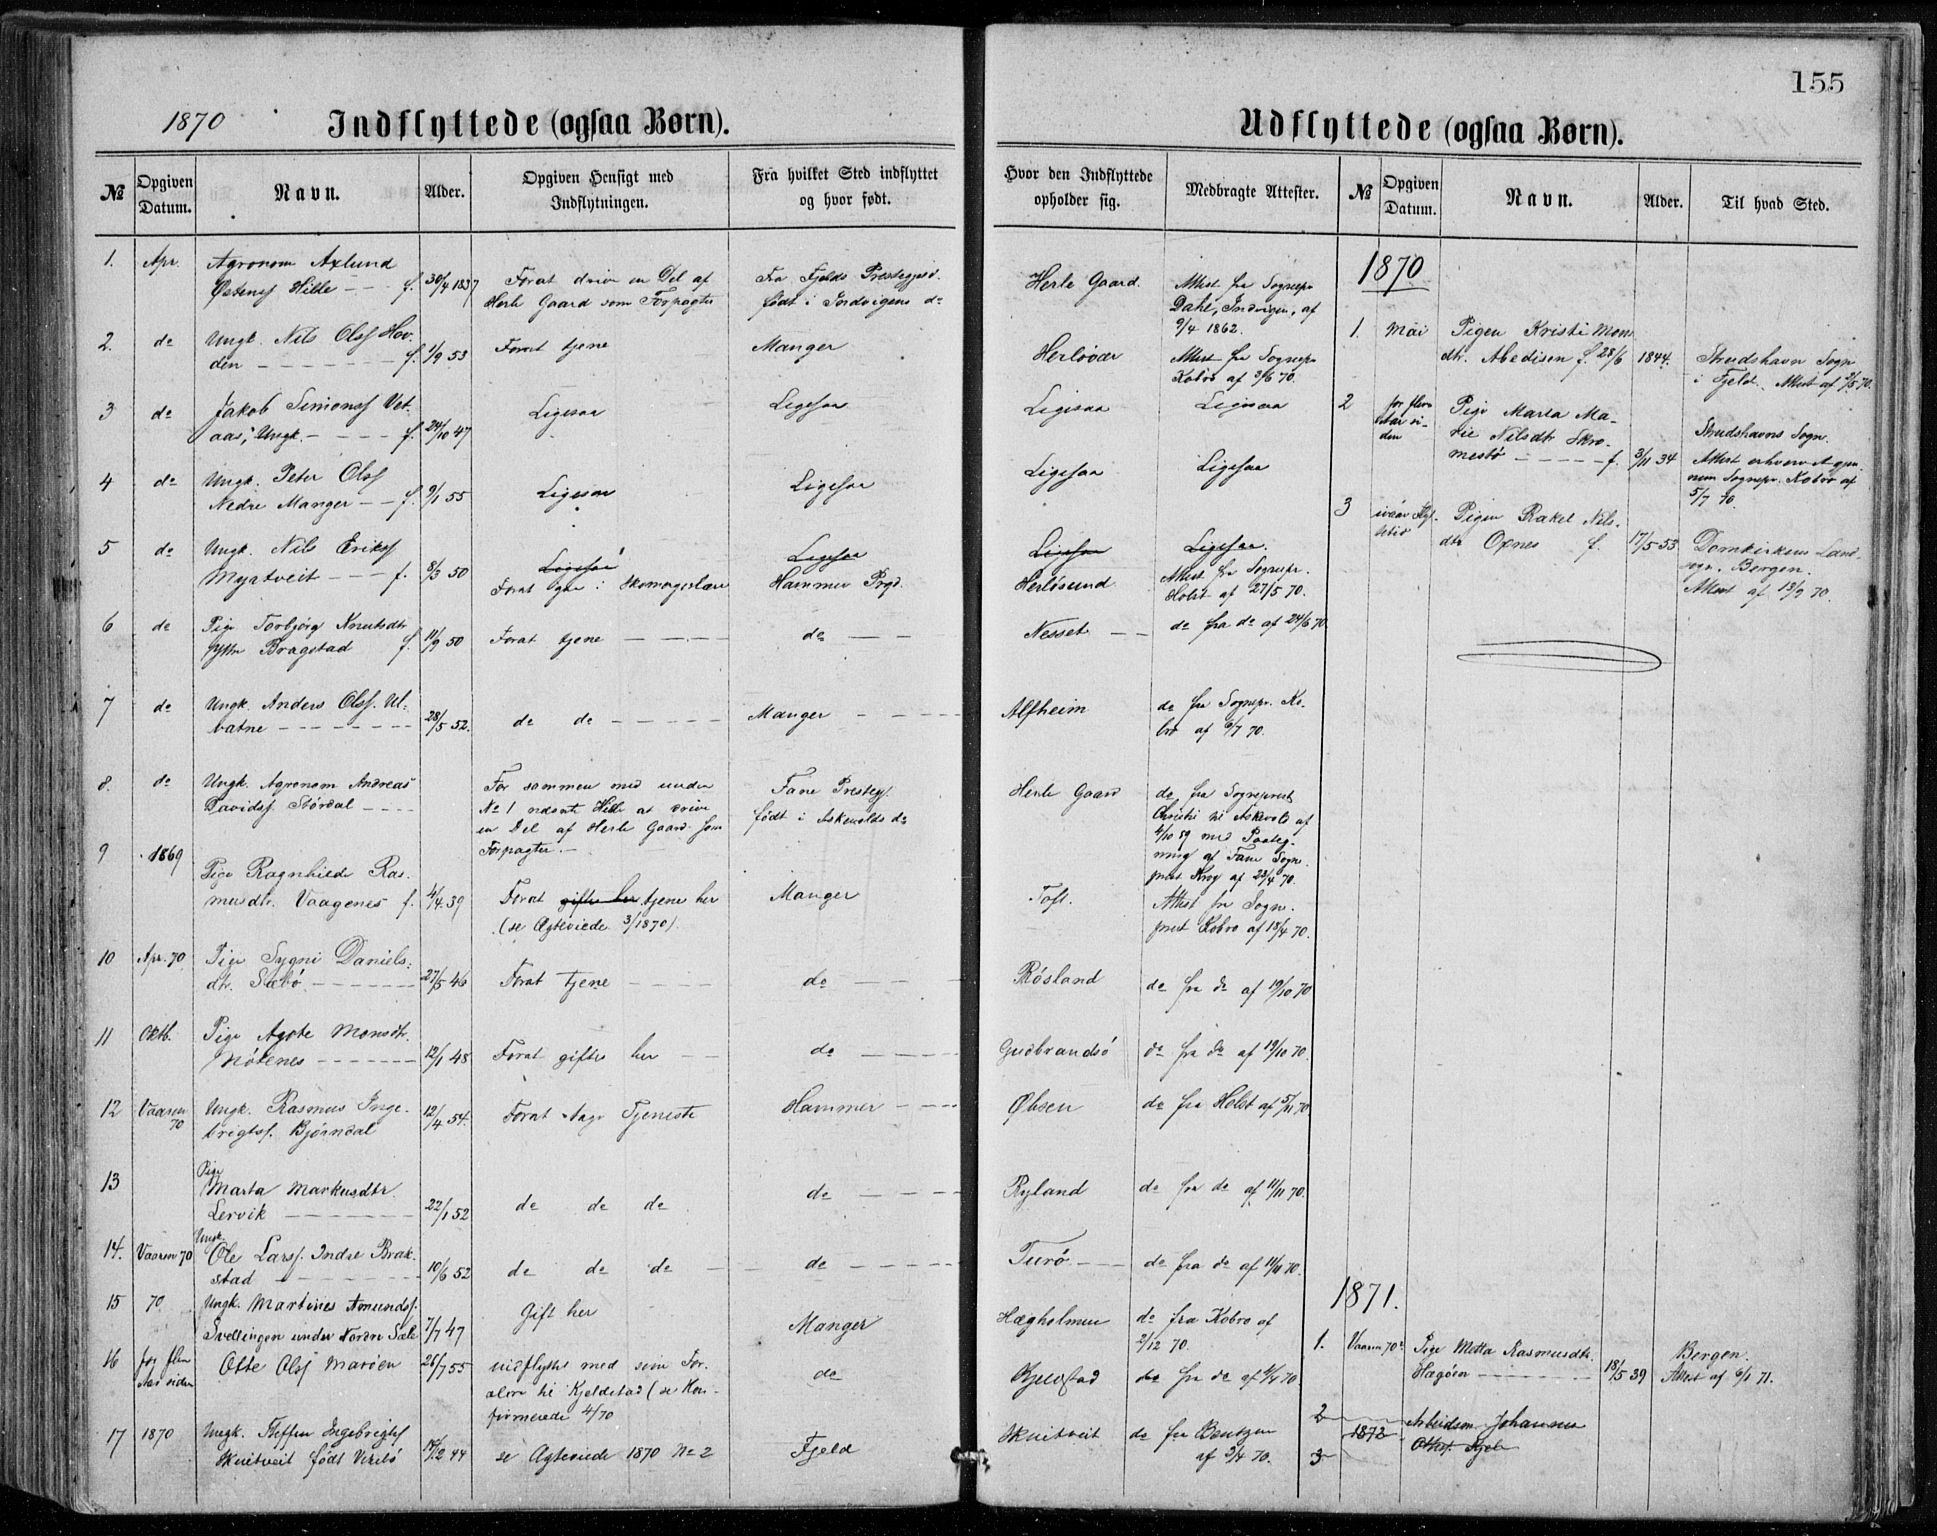 155
1870
Indflyttede (ogsaa Børn).
Udflyttede (ogsaa Børn).
№
Opgiven Datum.
Navn.
Alder.
Opgiven Hensigt med Indflytningen.
Fra hvilket Sted indflyttet og hvor født.
Hvor den Indflyttede opholder sig.
Medbragte Attester.
№
Opgiven Datum.
Navn.
Alder.
Til hvad Sted.
1. Apr. Agronom Axlund
Hille f. 30/4 1837
Forat drive en Del af
Herlø Gaard som Forpagter
Fra Fjelds Prestegjæld
født i Indvigens do
Herlø Gaard.
Attest fra Sognepr
Dahl, Indvigen, af
9/4 1862.
2. do Ungk. Nils Olss Hov-
den f. 1/9 53
Forat tjene
Manger
Herløvær
Attest fra Sognepr
Kobro af 3/6 70.
3 do Jakob Simonss Vet-
aas, Ungk. f. 24/10 47
Ligesaa
Ligesaa
Ligesaa
Ligesaa
4 do Ungk. Peter Olss
Nedre Manger f. 9/1 55
Ligesaa
Ligesaa
Ligesaa
Ligesaa
5 do Ungk. Nils Erikss
Myrtveit f. 8/3 50
Ligesaa
Forat gaa i Skomagerlære
Ligesaa
Hammer Prgd.
Ligesaa
Herløsund
Ligesaa.
Attest fra Sognepr.
Holst af 27/5 70.
6 do Pige Torbjørg Knutsdtr
Bragstad f. 11/9 50
Forat tjene
do
Nesset
do fra do af 24/6 70.
7 do Ungk. Anders Olss. Ul-
vatne 28/5 52.
do do
Manger
Alfheim
do fra Sognepr. Ko-
bro af 9/7 70.
8. do Ungk. Agronom Andreas
Davidss. Stórdal
For sammen med under
No 1 nævnte Hille at drive
en Del af Herlø Gaard som
Forpagter.
Fane Presteg.
født i Askevolds do
Herlø Gaard
do fra Sogneprest
Christie til Askvold af
4/10 59 med Paateg-
ning af Fane Sogne-
prest Krog af 23/4 70.
9 1869
Pige Ragnhilde Ras-
musdtr. Vaagenes f. 4/4 39
Forat gifte her tjene her
(se Ægteviede 3/1870).
Manger
Toft.
Attest fra Sogne-
prest Kobro af 18/4 70.
10 Apr. 70 Pige Sygni Daniels-
dtr. Sæbó 27/5 46
Forat tjene
do
Rósland
do fra do af 19/10 70
11 Oktb. Pige Agote Monsdtr.
Nótenes 12/1 48
Forat giftes her
do
Gudbrandsó
do fra do af 19/10 70.
12 Vaaren 70 Ungk. Rasmus Inge-
brigtss. Bjórndal 12/4 54.
Forat tage Tjeneste
Hammer
Øbsen
do fra Holst af 5/11 70
13 Pige
Marta Markusdtr.
Lervik 22/1 52
do do do
do
Ryland
do fra do af 11/11 70.
14. Vaaren 70 Ungk.
Ole Larss. Indre Brak-
stad 10/6 52
do do do
do
Turó
do fra do af 11/11 70.
15 70 Ungk. Martines Amundss.
Svellingen under Nordre Sæle 7/7 47
Gift her
Manger
Hægholmen
do fra Kobro af
2/12 70.
16 for flere Aar siden
Otte Olss Marøen 26/7 55
indflyttet med sine For-
ældre til Kjeldstad (se Kon-
firmerede 4/70
do
Kjeldstad
do fra do af 4/4 70.
17 1870 Ungk. Steffen Ingebrigtss
Skuitveit født 14/2 44
se Ægteviede 1870 No 2
Fjeld
Skuitveit
do fra Bentzen
af 2/4 70.
1870
1. Mai Pigen Kristi Mons-
dtr. Abedisen f. 28/6 1844.
Strudshavn Sogn
i Fjeld. Attest af 2/5 70.
2 for flere Aar si-
den
Pige Marta Ma-
rie Nilsdtr Skro-
mestó f. 3/11 34
Strudshavns Sogn.
Attest erhvervet gjen-
nem Sognepr. Kobro af
5/7 70.
3 ivaar
Pigen Rakel Nils-
dtr Oxnes f. 17/5 53
Domkirkens Land-
sogn, Bergen.
Attest af 13/9 70.
1871.
1. Vaaren 70 Pige Metta Rasmusdtr.
Hægóen 18/5 39
Bergen.
Attest af 6/1 71.
2 1872 Arbeidsm. Johannes
3